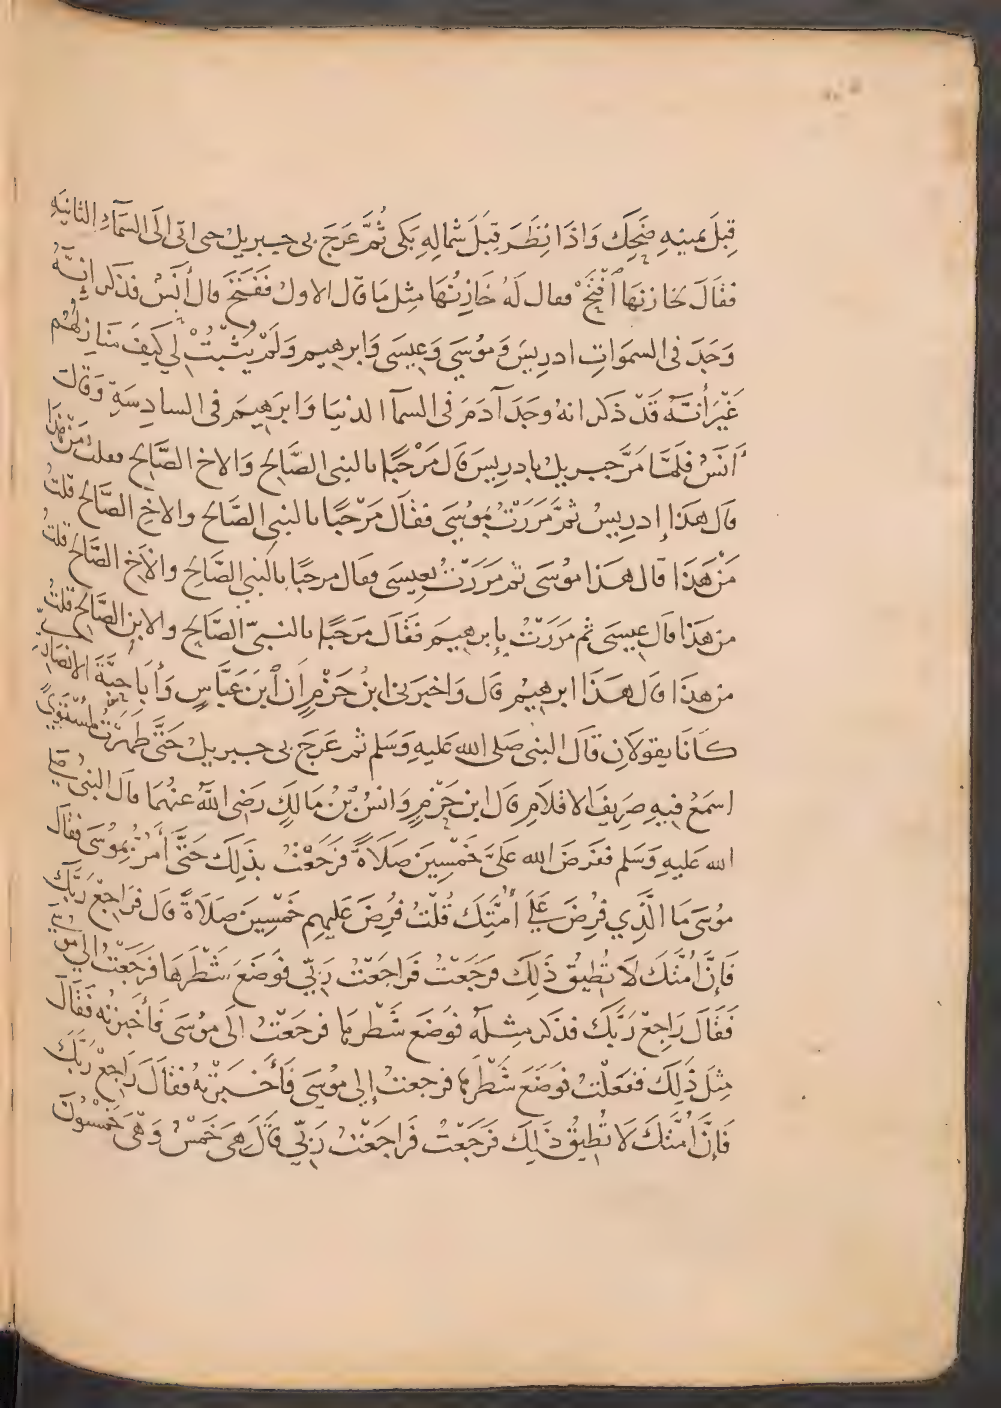 قِبَلَ يمينِهِ ضَحِكَ وَاذَا نظَرَ قِبَلَ شمالِهِ بَكى ثُمَّ عَرَجَ بى جبريلُ حتى اتى الَى السمَآءِ الثانيَهِ
فقَالَ لخازنهَا اُفْتَحْ فقال لَهُ خَازنُهَا مثِل مَا قال الاولُ فَفَتَحَ قال أنَسٌ فذَكر انهُ
وَجَدَ فى السموَاتِ ادريسَ وَموُسَى وَعِيسَى وَابرهيم وَلَمْ يثْبتْ لي كَيفَ منَازِلهُم
غَيْرَ أنهُ قَدْ ذكر انهُ وجَدَ آدَمَ فى السمآ الدنيَا وَابرَهِيمَ فى السادِسَةِ وَقَالَ
أنَسٌ فلمَّا مَرَّ جبريلُ بادريسَ قال مَرْحَبًا بالنبى الصَّالحِ وَالاخ الصَّالحِ فقلتُ مَنْ هَذَا
قال هَذَا إدرِيسُ ثمَّ مَرَرْتُ بموُسَى فقَالَ مَرْحَبًا بالنبىِ الصَّالحِ والاخِ الصَّالحِ قلتُ
مَنْ هَذَا قال هَذا موُسَى ثم مَرَرْتُ بعِيسَى فقال مرحبًا بالنبي الصَّالحِ والاَخ الصَّالحِ قلتُ
من هَذَا قال عِيسَى ثم مَرَرْتُ بإبرهِيمَ فقَالَ مَرحَبًا بالنبىّ الصَّالحِ والابنِ الصَّالح قلتُ
من هذَا قال هَذَا ابرهيمُ قال وَاخبرَنى ابنُ حَزْمٍ أن ابْنَ عَبَّاسٍ وَأبَا حَبَّةَ الانصَارِيَّ
كَانَا يقولاَنِ قال النبى صَلى الله عَليهِ وَسَلم ثم عَرَجَ بى جبريلُ حَتَّى ظَهَرْتُ لمُسْتَوًى
اسمَعُ فيهِ صَرِيفَ الاقلاَمِ قال ابن حَزْمٍ وَانسُ بْنُ مَالكٍ رَضِى اللهُ عنهُمَا قال النبىُ صَلى
الله عَليهِ وَسَلم ففرَضَ الله عَلىَّ خَمْسِينَ صَلاَةً فرَجَعْتُ بذلِكَ حَتَّى أَمُرَّ بموُسَى فقال
موُسَى مَا الَّذِي فرِضَ عَلَى أمَّتِكَ قُلْتُ فُرِضَ عَليهِم خَمْسِينَ صَلاَةً قال فرَاجِعْ رَبَّكَ
فَإنَّ امَّتَكَ لاَ تُطِيقُ ذَلِكَ فرَجَعْتُ فَراجَعْتُ رَبِّي فوَضَعَ شَطْرَهَا فرَجَعْتُ الى موُسَى
فَقَالَ رَاجِعْ رَبَّكَ فذكر مثِلَهُ فوَضَعَ شَطْرهَا فرجَعْتُ الَى موُسَى فَأخْبرْتهُ فَقَالَ
مِثلَ ذَلِكَ ففعَلْتُ فوَضَعَ شَطْرَهَا فرجعتُ إلى موُسَى فَأخبَرْتهُ فقَالَ رَاجِعْ رَبَّكَ
فَإنَّ امَّتَكَ لاَ تُطِيقُ ذَلِكَ فرَجَعْتُ فَراجَعْتُ رَبِّي فقَالَ هِىَ خَمْسٌ وَهْىَ خَمْسُونَ